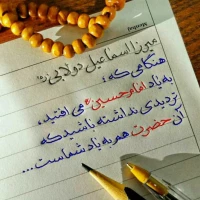 میرزا اسماعیل دولابی ره
هنگامی که؛
به یاد امام حسین می افتید،
تردیدی نداشته باشید که
آن حضرت هم به یاد شماست...